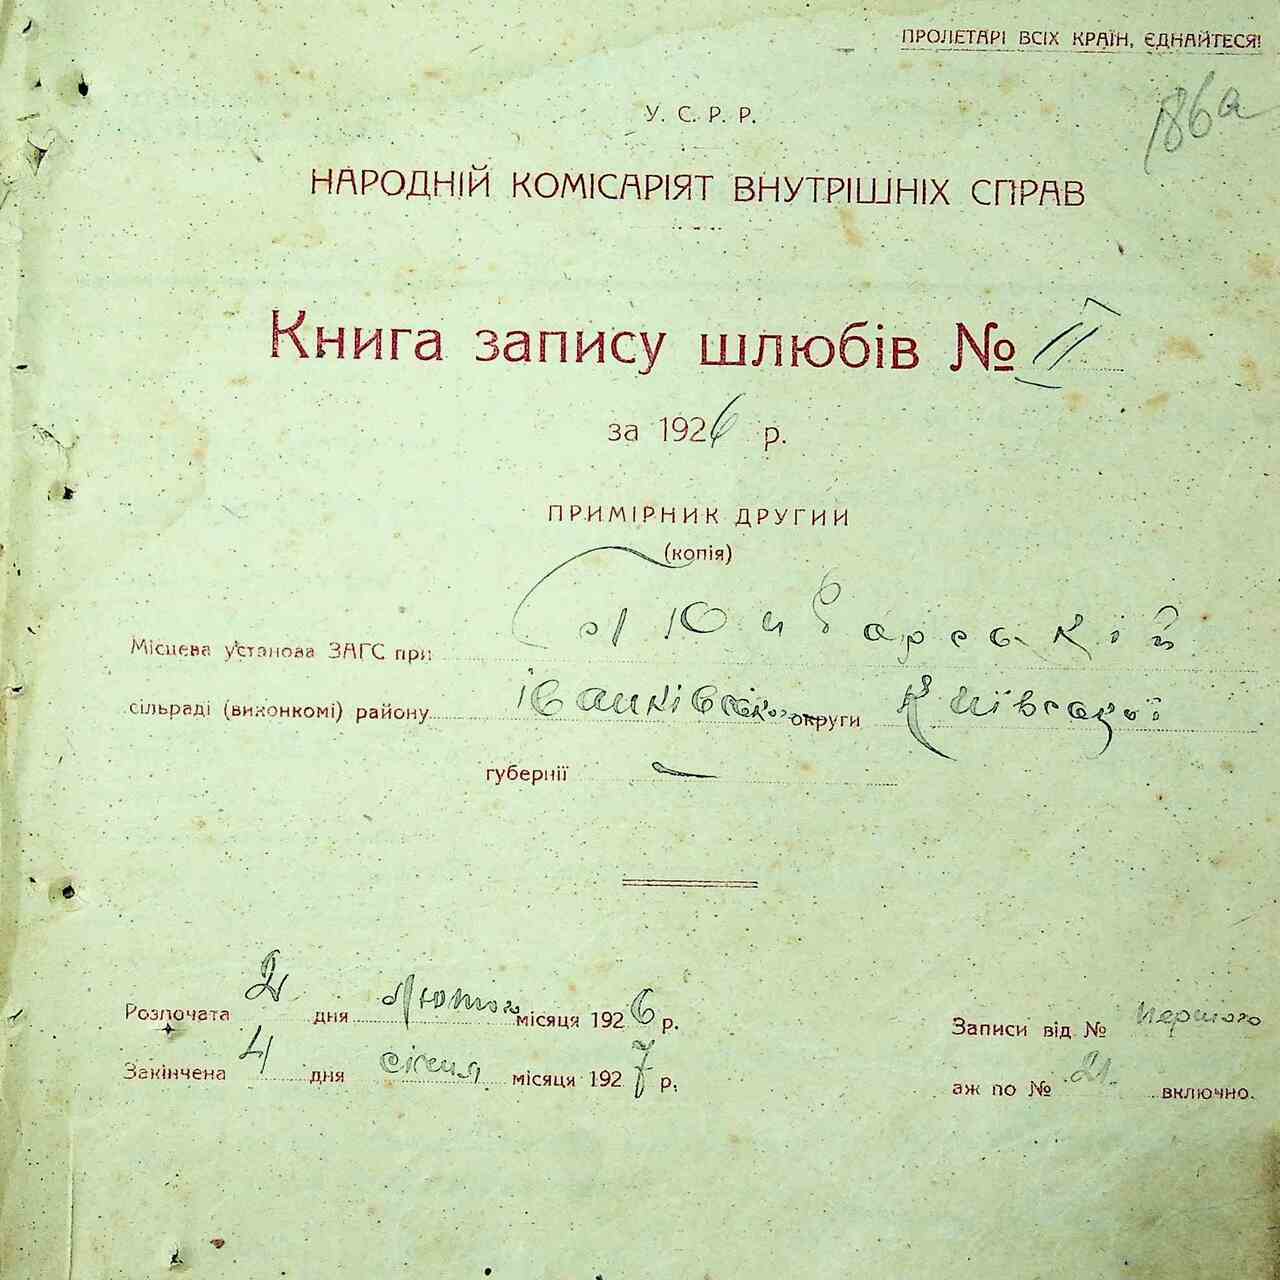 ПРОЛЕТАРІ ВСІХ КРАЇН, ЄДНАЙТЕСЯ!
186а
У. С. Р. Р.
НАРОДНІЙ КОМІСАРІЯТ ВНУТРІШНІХ СПРАВ
Книга запису шлюбів № II
за 1926 р.
ПРИМІРНИК ДРУГИЙ
(копія)
Місцева установа ЗАГС при
сільраді (виконкомі) району Іванківського округи Київської
губернії —
Розпочата 2 дня лютого місяця 1926 р.
Закінчена 4 дня січня місяця 1927 р.
Записи від № першого
аж по № 21 включно.